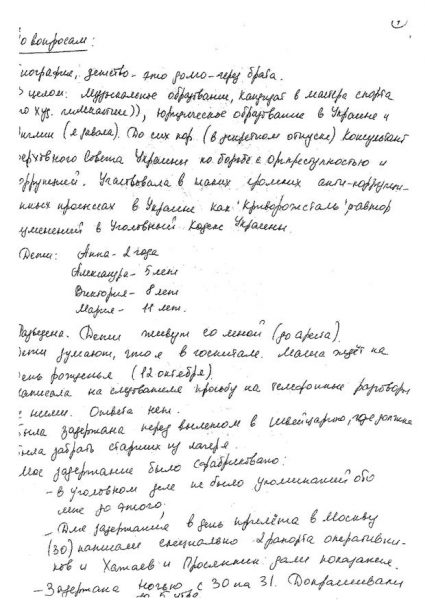 1
о вопросам:
иография, детство - это долго - через брата.
целом: Музыкальное образование, кандидат в мастера спорта
о худ. гимнастике)), юридическое образование в Украине и
нглии (я левша). До сих пор (в декретном отпуске) консультант
ерховного Совета Украины по борьбе с оргпреступностью и
оррупцией. Участвовала в таких громких анти-коррупци-
нных процессах в Украине как "Криворожсталь" автор
зменений в Уголовный Кодекс Украины.
Дети: Анна - 2 года
Александра - 5 лет
Виктория - 8 лет
Мария - 11 лет.
азведена. Дети живут со мной (до ареста).
ети думают, что я в госпитале. Маша ждёт на
ень рожденья (12 октября).
аписала на следователя просьбу на телефонные разговоры
с ними. Ответа нет.
ыла задержана перед вылетом в Швейцарию, где должна
ыла забрать старших из лагеря.
Мое задержание было сфабриковано:
- в уголовном деле не было упоминаний обо
мне до этого;
- Для задержания в день прилёта в Москву
(30) написали специально 2 рапорта оперативни-
ков и Хатаев и Прослении дали показания.
- Задержана ночью с 30 на 31. Допрашивали
до 5 утра